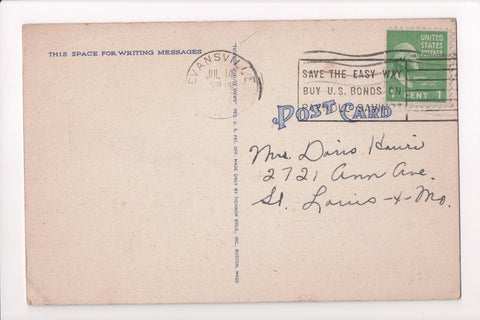 THIS SPACE FOR WRITING MESSAGES
REG. U.S. PAT. OFF. MADE ONLY BY TICHNOR BROS., INC. BOSTON, MASS.
EVANSVILLE
JUL
SAVE THE EASY WAY
BUY U.S. BONDS ON
PAYROLL SAVINGS
UNITED
STATES
POSTAGE
CENT 1
POST CARD
Mrs. Doris
2721 Ann Ave.
St. Louis - 4 - Mo.